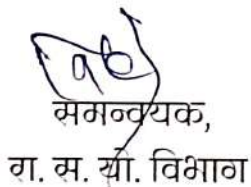 समन्वयक,
ग. स. यो. विभाग